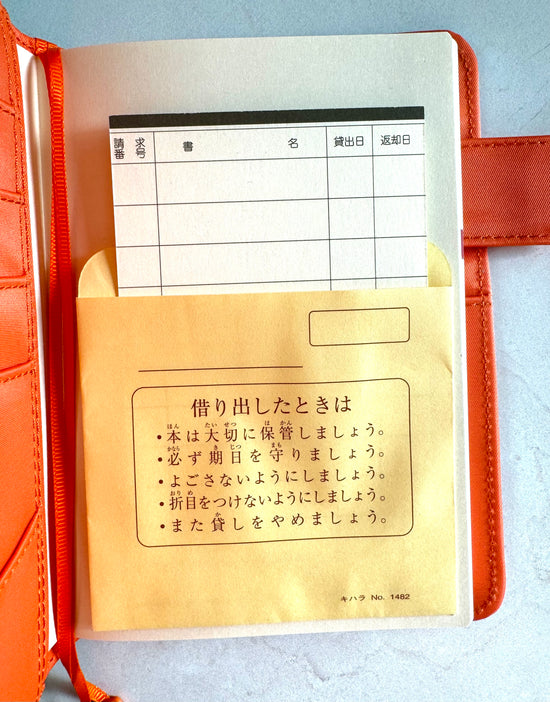 請求番号 書名 貸出日 返却日
借り出したときは
・本は大切に保管しましょう。
・必ず期日を守りましょう。
・よごさないようにしましょう。
・折目をつけないようにしましょう。
・また貸しをやめましょう。
キハラ No. 1482